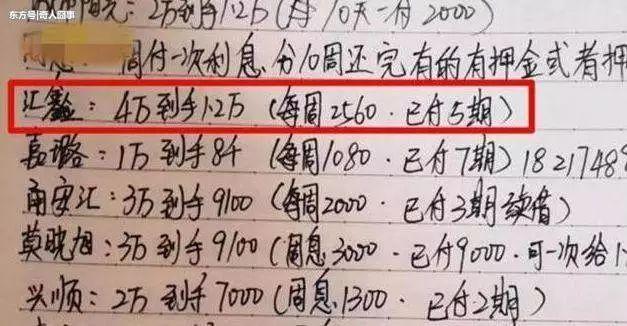 东方号|奇人囧事
2万到手1.2万(每10天一付2000)
周付一次利息.分10周还完有的有押金或者押
汇鑫:4万到手1.2万(每周2560.已付5期)
嘉璐:1万到手84(每周1080.已付7期)1821748
甬安汇:3万到手9100(每周2000.已付3期续借)
莫晓旭:3万到手9100(周息3000.已付9000.可一次给1
兴顺:2万到手7000(周息1300.已付2期)